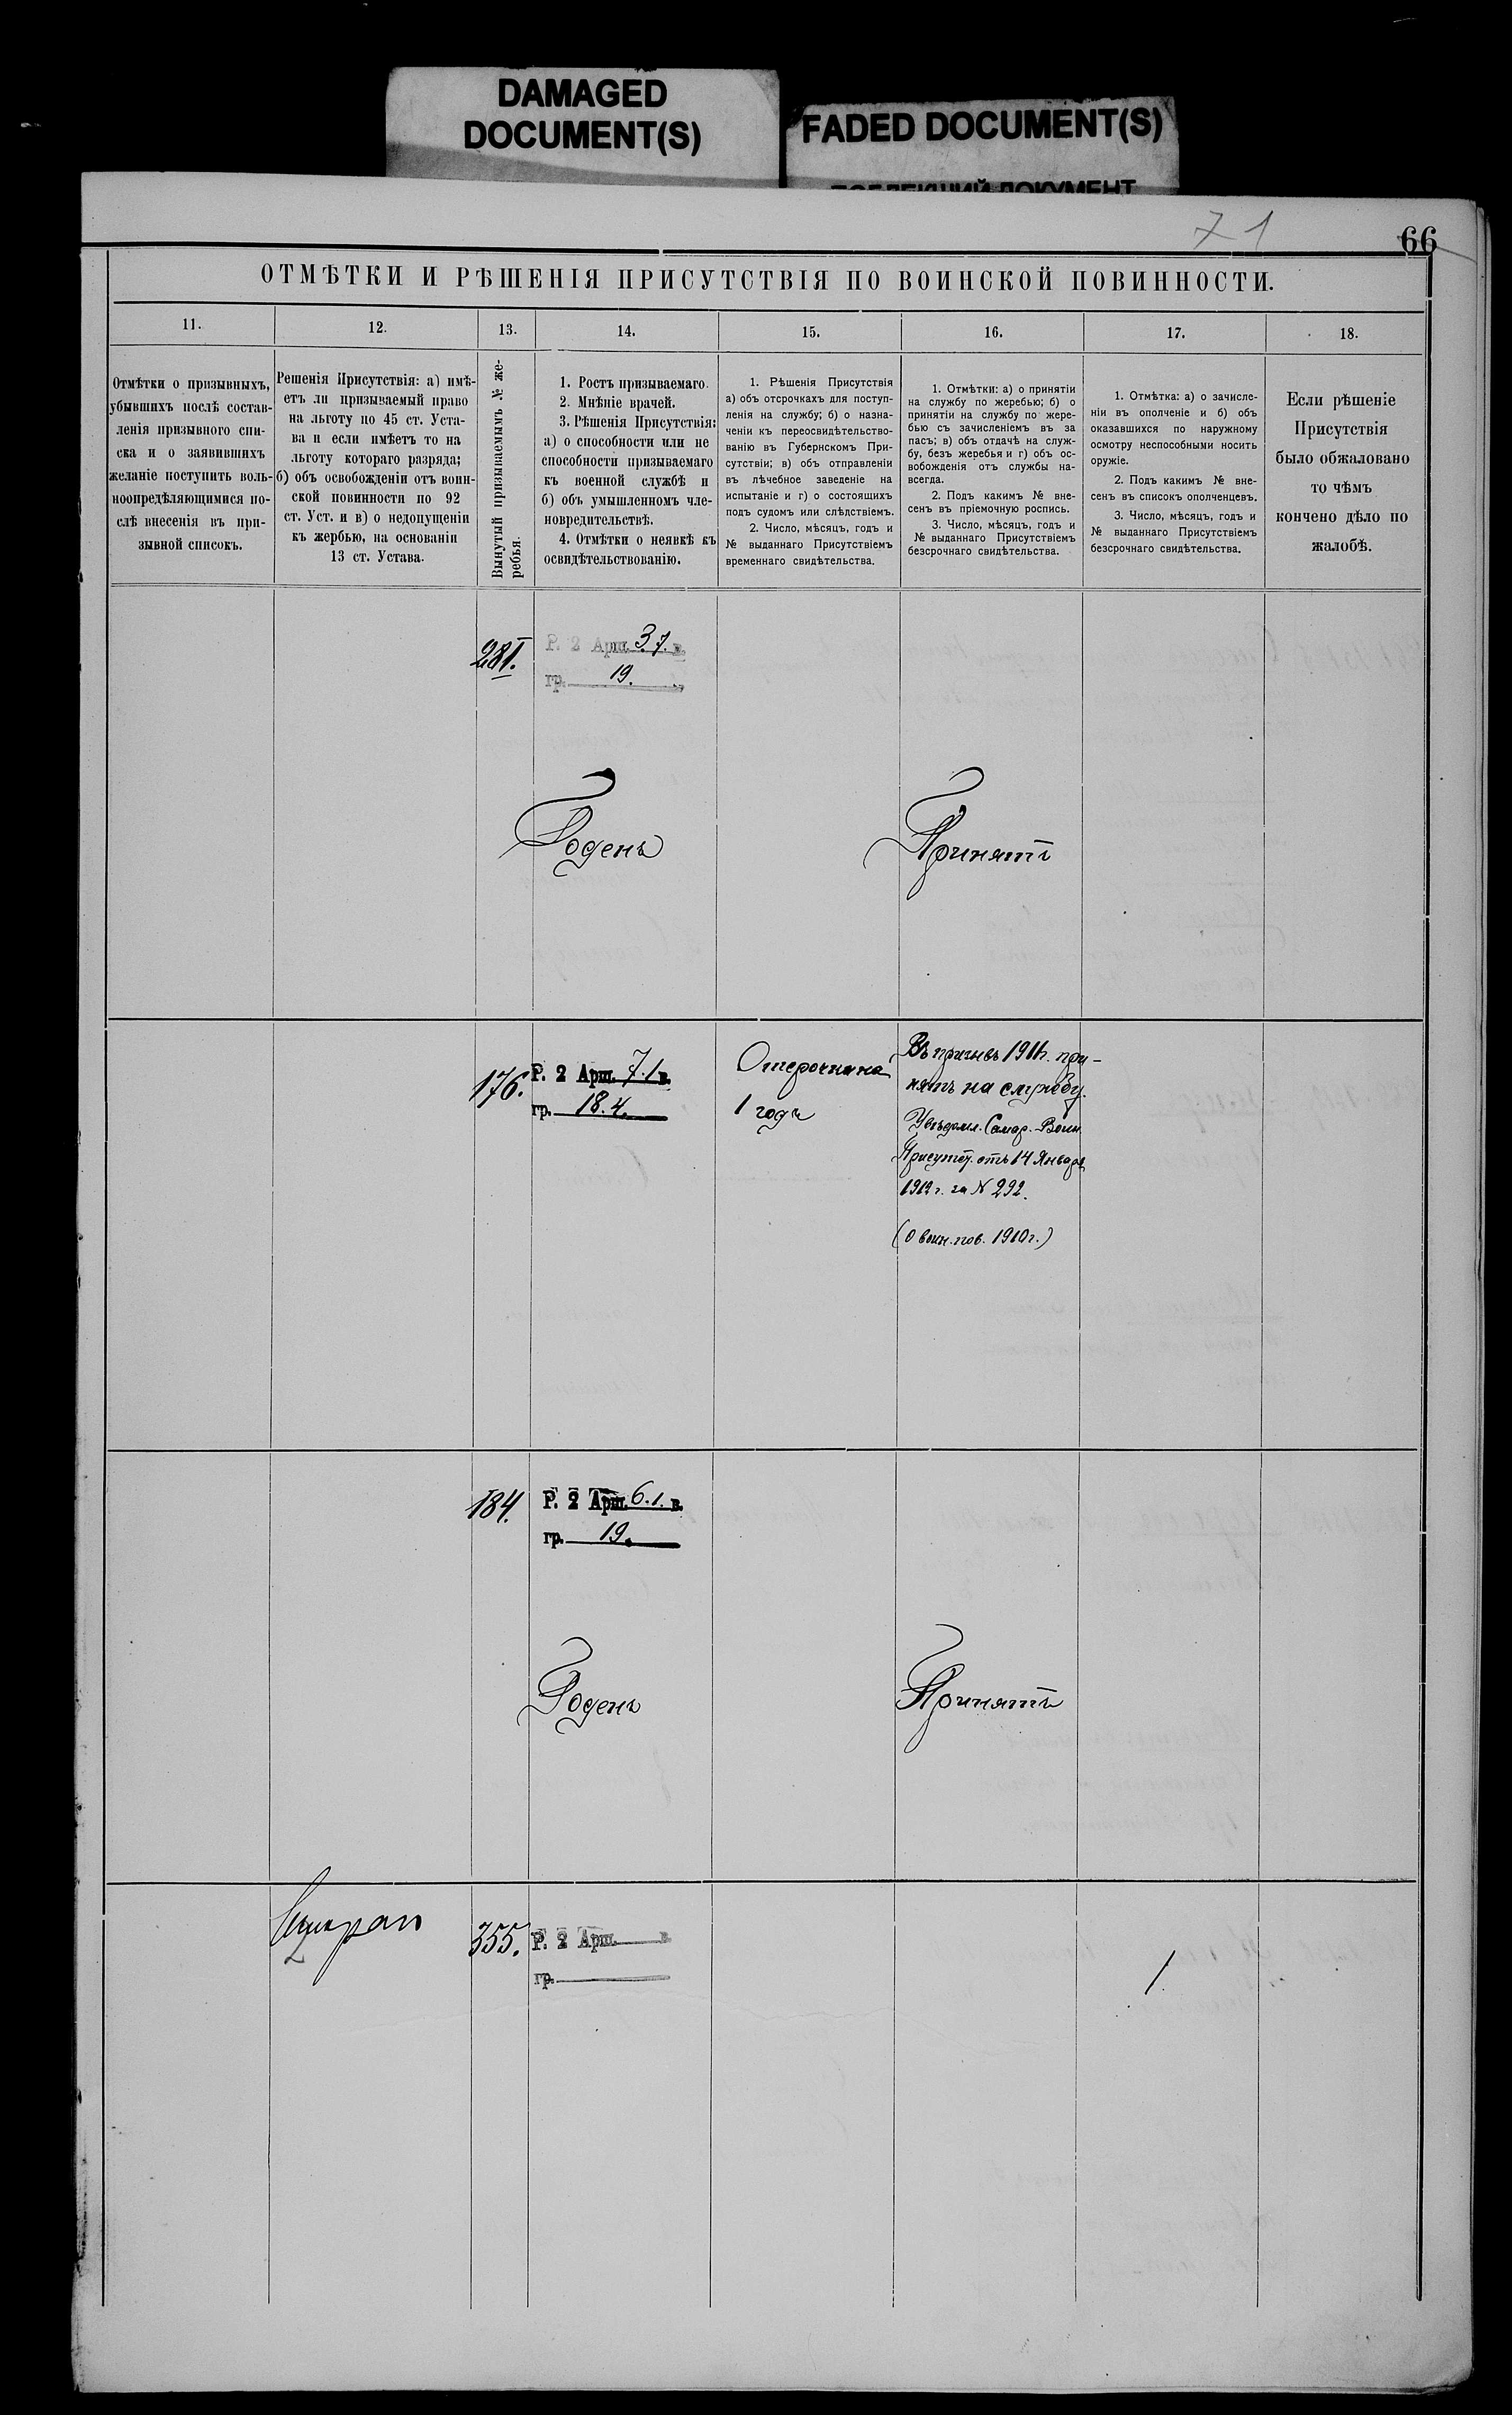 DAMAGED
DOCUMENT(S)
FADED DOCUMENT(S)
71
66
ОТМѢТКИ И РѢШЕНІЯ ПРИСУТСТВІЯ ПО ВОИНСКОЙ ПОВИННОСТИ.
11.
12.
13.
14.
15.
16.
17.
18.
Отмѣтки о призывныхъ,
убывшихъ послѣ состав-
ленія призывного спи-
ска и о заявившихъ
желаніе поступить воль-
ноопредѣляющимися по-
слѣ внесенія въ при-
зывной списокъ.
Решенія Присутствія: а) имѣ-
етъ ли призываемый право
на льготу по 45 ст. Уста-
ва и если имѣетъ то на
льготу котораго разряда;
б) объ освобожденіи отъ воин-
ской повинности по 92
ст. Уст. и в) о недопущеніи
къ жербью, на основаніи
13 ст. Устава.
Вынутый призываемымъ № же-
ребья.
1. Ростъ призываемаго.
2. Мнѣніе врачей.
3. Рѣшенія Присутствія:
а) о способности или не
способности призываемаго
къ военной службѣ и
б) объ умышленномъ чле-
новредительствѣ.
4. Отмѣтки о неявкѣ къ
освидѣтельствованію.
1. Рѣшенія Присутствія
а) объ отсрочкахъ для поступ-
ленія на службу; б) о назна-
ченіи къ переосвидѣтельство-
ванію въ Губернскомъ При-
сутствіи; в) объ отправленіи
въ лѣчебное заведеніе на
испытаніе и г) о состоящихъ
подъ судомъ или слѣдствіемъ.
2. Число, мѣсяцъ, годъ и
№ выданнаго Присутствіемъ
временнаго свидѣтельства.
1. Отмѣтки: а) о принятіи
на службу по жеребью; б) о
принятіи на службу по жере-
бью съ зачисленіемъ въ за
пасъ; в) объ отдачѣ на служ-
бу, безъ жеребья и г) объ ос-
вобожденія отъ службы на-
всегда.
2. Подъ какимъ № вне-
сенъ въ пріемочную роспись.
3. Число, мѣсяцъ, годъ и
№ выданнаго Присутствіемъ
безсрочнаго свидѣтельства.
1. Отмѣтка: а) о зачисле-
ніи въ ополченіе и б) объ
оказавшихся по наружному
осмотру неспособными носить
оружіе.
2. Подъ какимъ № вне-
сенъ въ списокъ ополченцевъ.
3. Число, мѣсяцъ, годъ и
№ выданнаго Присутствіемъ
безсрочнаго свидѣтельства.
Если рѣшеніе
Присутствія
было обжаловано
то чѣмъ
кончено дѣло по
жалобѣ.
281.
Р. 2 Арш. 3.7. в.
гр. 19.
Годенъ
Принятъ
176.
Р. 2 Арш. 7.1 в.
гр. 18.4.
Отсрочка на
1 годъ
Въ призывъ 1911г. при-
нятъ на службу.
Увѣдомл. Самар. Воин.
Присутст. отъ 14 Января
1912 г. за № 292.
(О воин. пов. 1910 г.)
184.
Р. 2 Арш. 6.1. в.
гр. 19.
Годенъ
Принятъ
2
355.
Р. 2 Арш. в.
гр.
1.